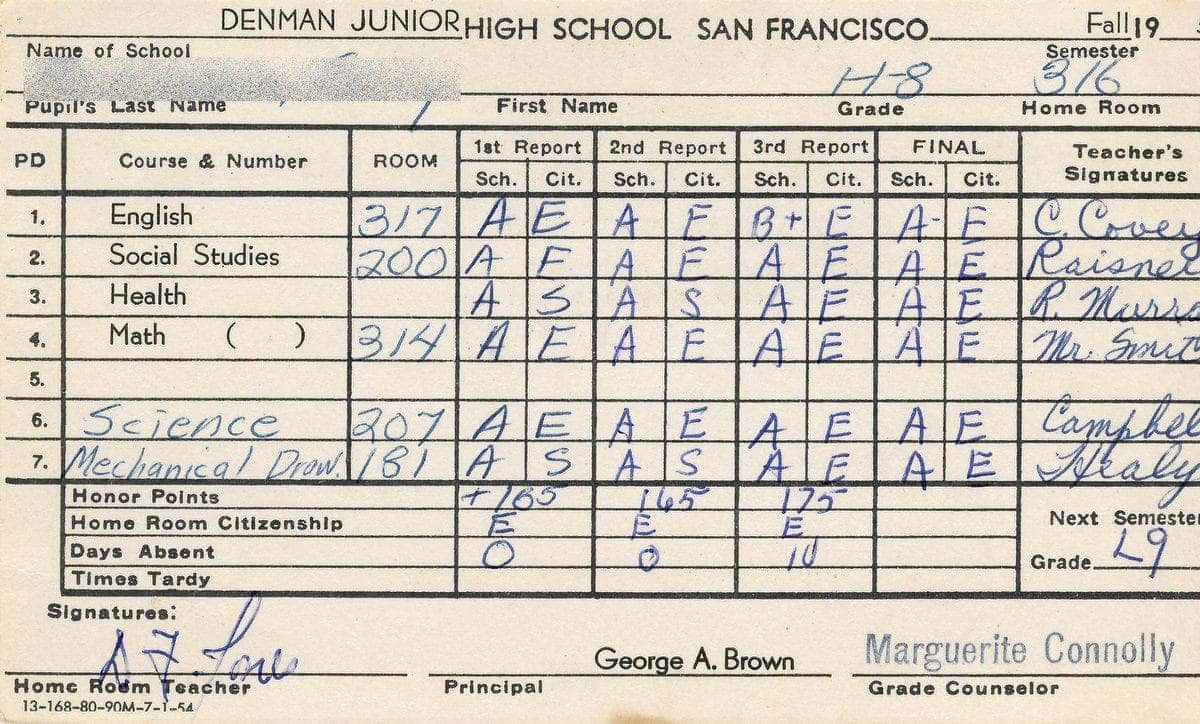 DENMAN JUNIOR HIGH SCHOOL SAN FRANCISCO Fall 19
Name of School Semester
H-8 316
Pupil's Last Name First Name Grade Home Room
PD Course & Number ROOM 1st Report 2nd Report 3rd Report FINAL Teacher's Signatures
Sch. Cit. Sch. Cit. Sch. Cit. Sch. Cit.
1. English 317 A E A E B+ E A- E C. Covey
2. Social Studies 200 A E A E A E A E Raisner
3. Health A S A S A E A E R. Murra
4. Math ( ) 314 A E A E A E A E Mr. Smit
5.
6. Science 207 A E A E A E A E Campbel
7. Mechanical Draw. 181 A S A S A E A E Healy
Honor Points +165 165 175
Home Room Citizenship E E E Next Semester
Days Absent 0 0 10 Grade L9
Times Tardy
Signatures:
George A. Brown Marguerite Connolly
Home Room Teacher Principal Grade Counselor
13-168-80-90M-7-1-54